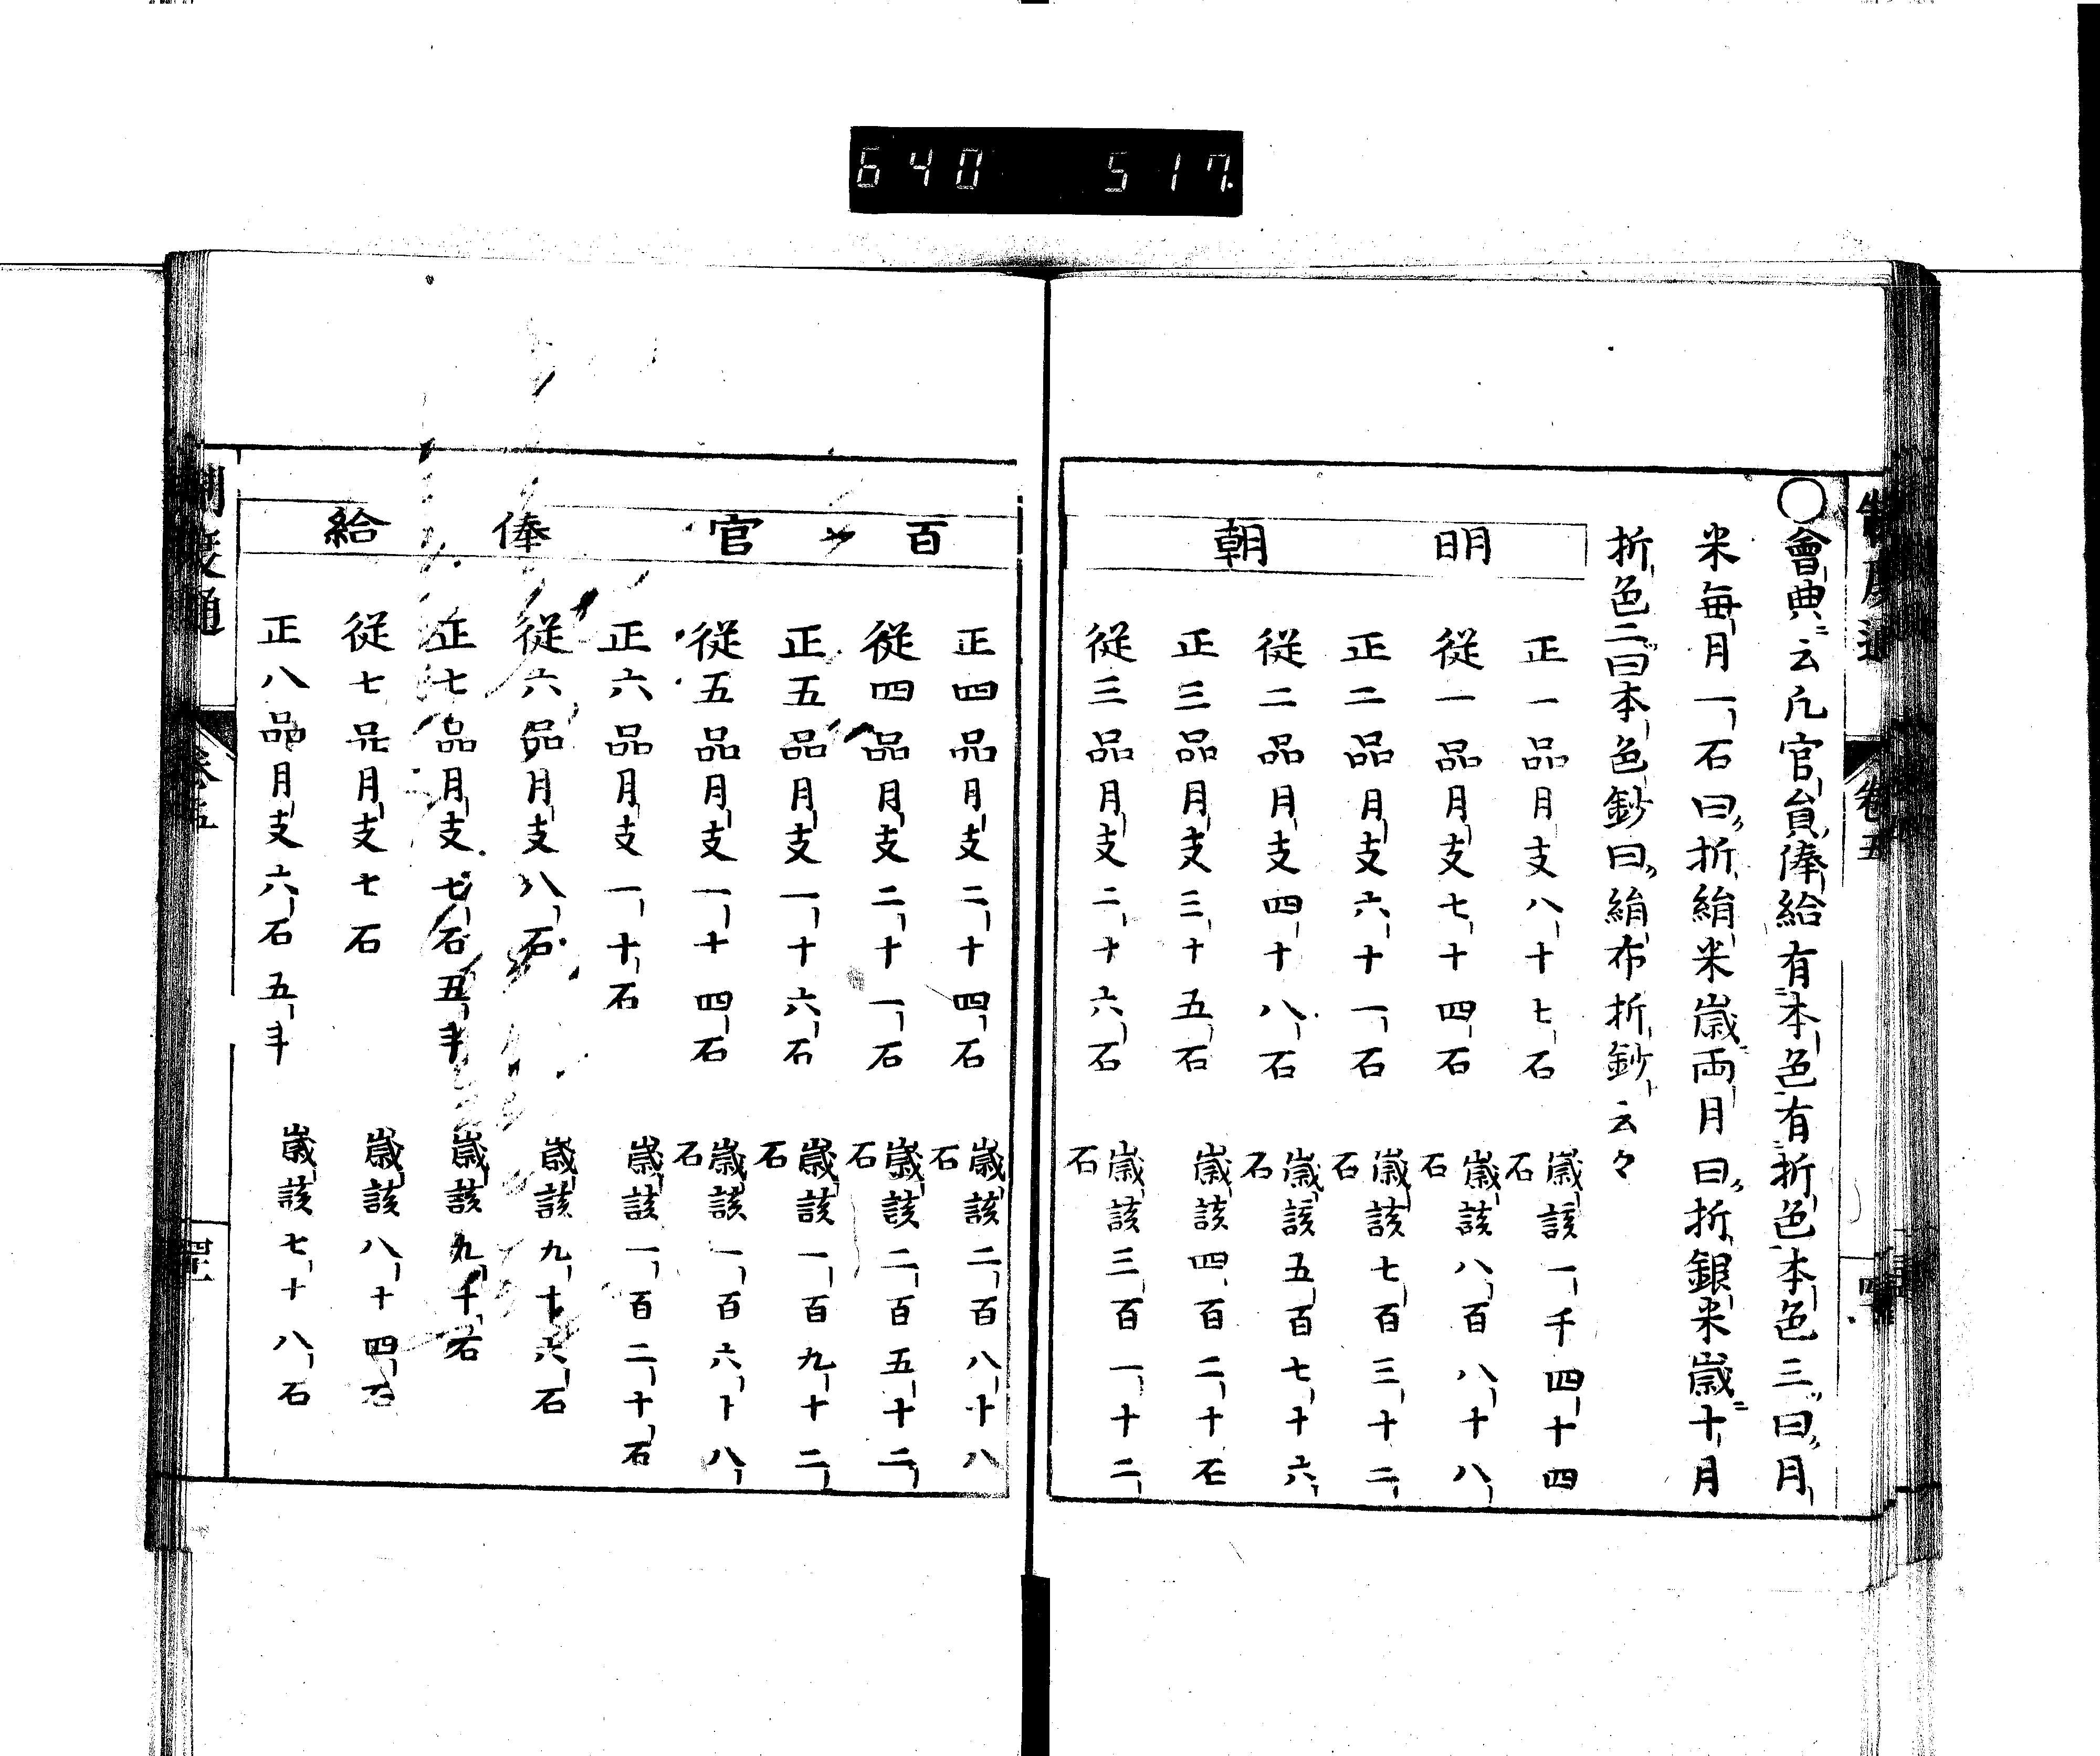 640 517.
制度通 卷五
〇會典云凡官員俸給有本色有折色本色三曰月
米每月一石曰折絹米歲兩月曰折銀米歲十月
折色二曰本色鈔曰絹布折鈔云々
明朝
正一品月支八十七石 歲該一千四十四石
從一品月支七十四石 歲該八百八十八石
正二品月支六十一石 歲該七百三十二石
從二品月支四十八石 歲該五百七十六石
正三品月支三十五石 歲該四百二十石
從三品月支二十六石 歲該三百一十二石
百官俸給
正四品月支二十四石 歲該二百八十八石
從四品月支二十一石 歲該二百五十二石
正五品月支一十六石 歲該一百九十二石
從五品月支一十四石 歲該一百六十八石
正六品月支一十石 歲該一百二十石
從六品月支八石 歲該九十六石
正七品月支七石五斗 歲該九十石
從七品月支七石 歲該八十四石
正八品月支六石五斗 歲該七十八石
制度通 卷五